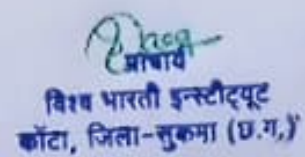 प्राचार्य
विश्व भारती इन्स्टीट्यूट
कोंटा, जिला-सुकमा (छ.ग.)